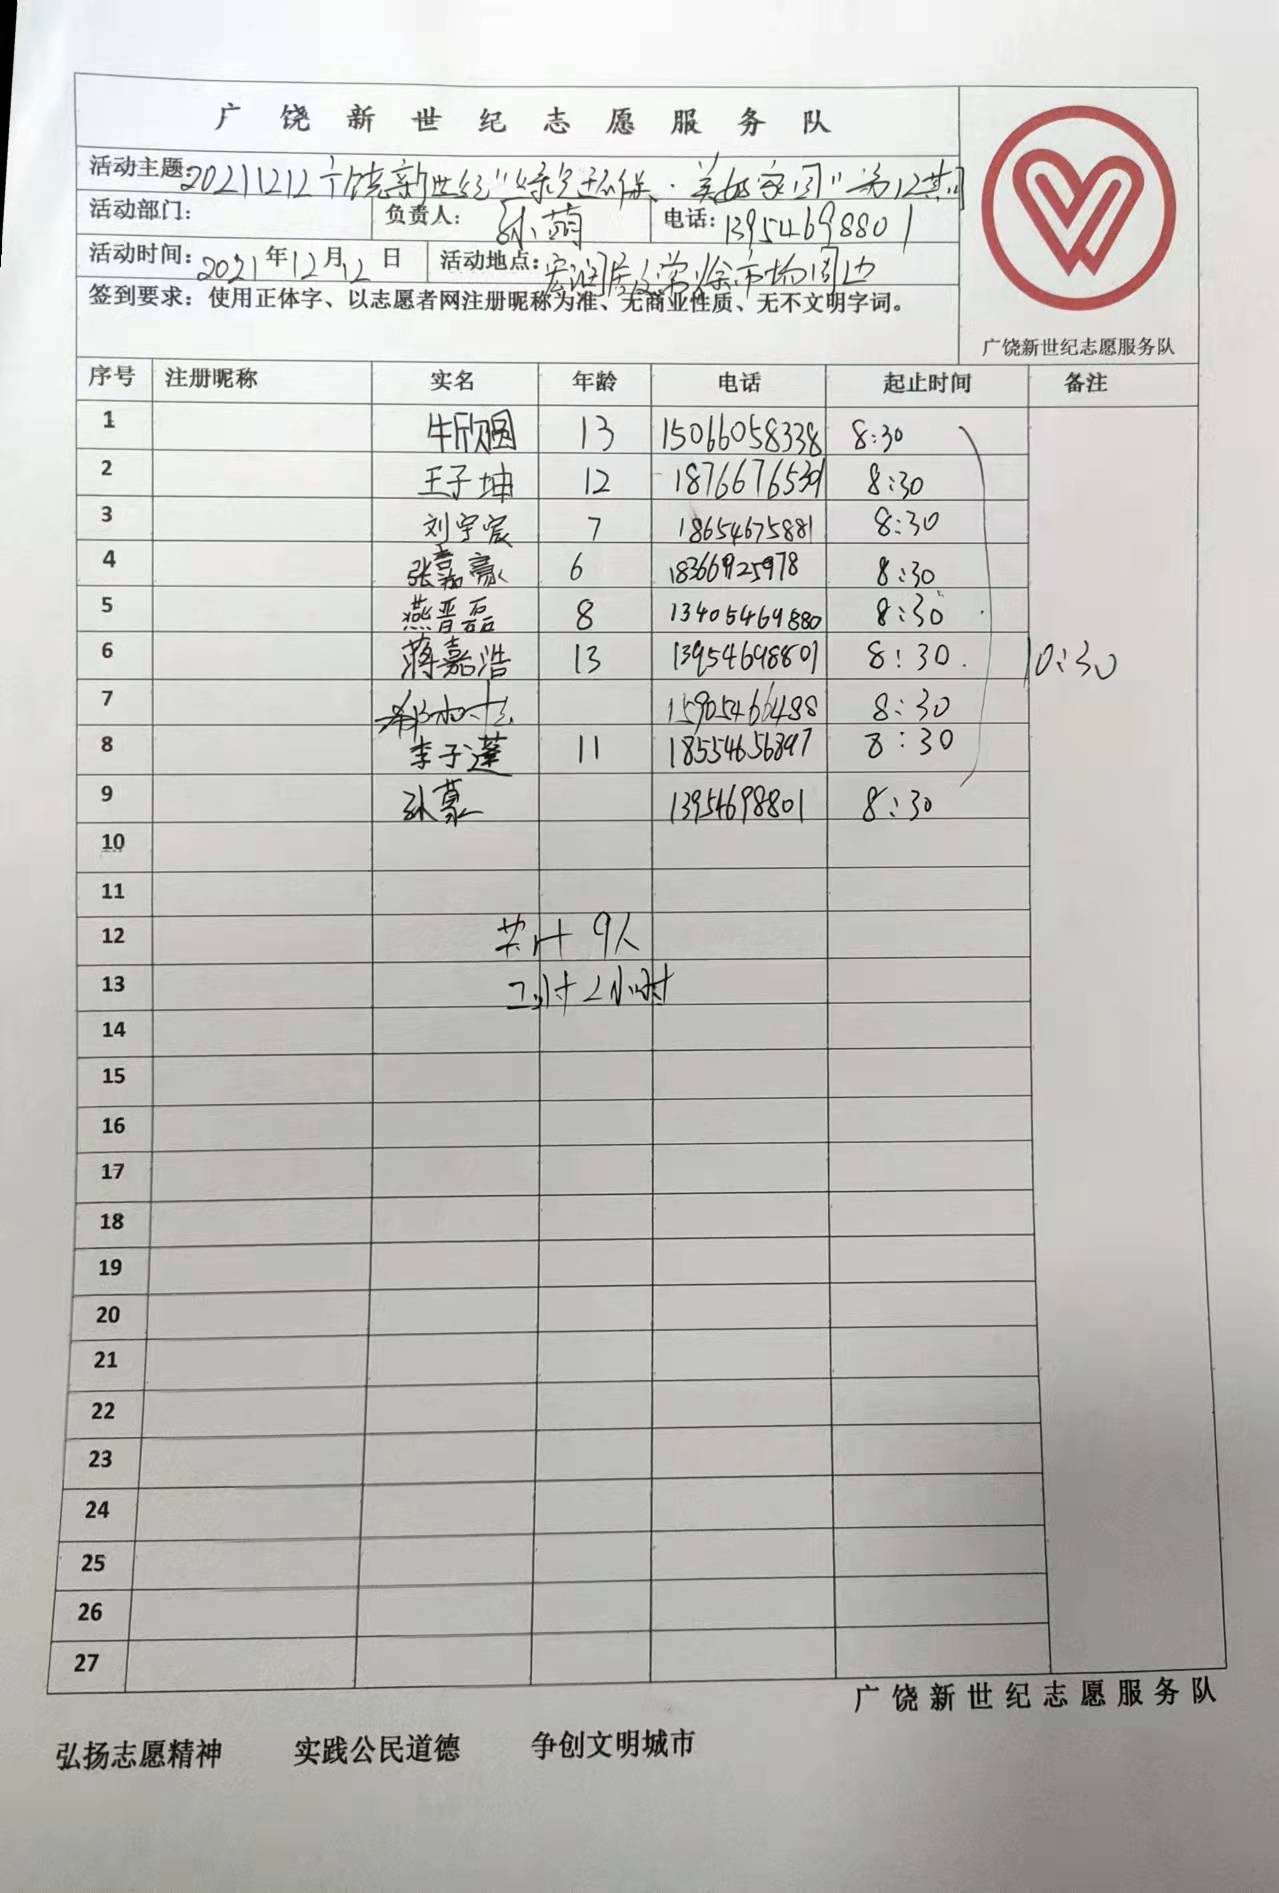 广饶新世纪志愿服务队
活动主题:20211212广饶新世纪"绿色环保·美好家园"第12期
活动部门: 负责人: 孙萌 电话:13954698801
活动时间:2021年12月12日 活动地点:宏润居及常徐市场周边
签到要求:使用正体字、以志愿者网注册昵称为准、无商业性质、无不文明字词。
广饶新世纪志愿服务队
序号 注册昵称 实名 年龄 电话 起止时间 备注
1 牛欣圆 13 15066058338 8:30
2 王子坤 12 18766765 8:30
3 刘宇宸 7 18654675881 8:30
4 张嘉豪 6 18366925978 8:30
5 燕晋磊 8 13405469880 8:30
6 蒋嘉浩 13 13954698801 8:30 10:30
7 15905466488 8:30
8 李子蓬 11 18554656897 8:30
9 孙蒙 13954698801 8:30
10
11
12 共计9人
13 工时2小时
14
15
16
17
18
19
20
21
22
23
24
25
26
27
广饶新世纪志愿服务队
弘扬志愿精神 实践公民道德 争创文明城市